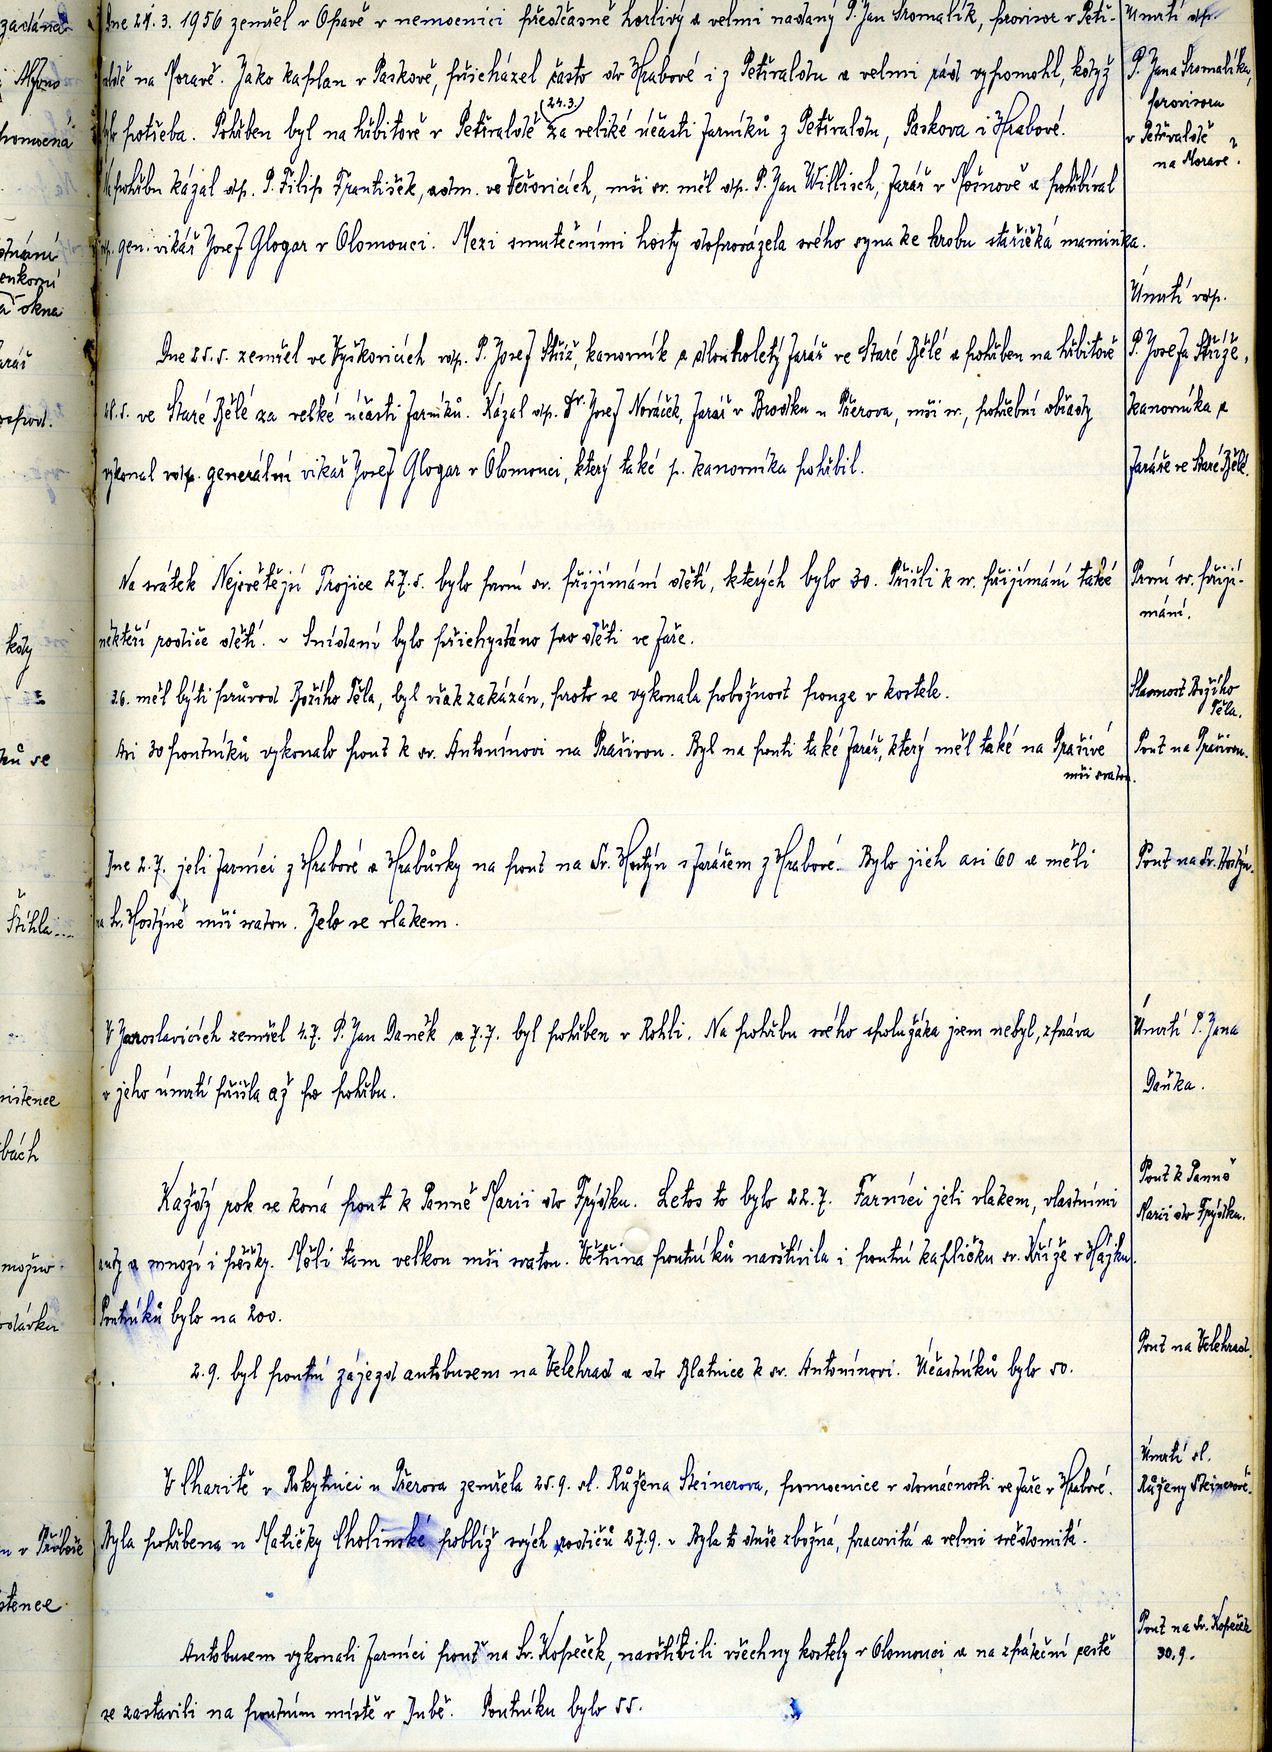 Dne 21. 3. 1956 zemřel v Opavě v nemocnici předčasně horlivý a velmi nadaný P. Jan Sromalík, provisor v Petř-
valdě na Moravě. Jako kaplan v Paskově, přicházel často do Hrabové i z Petřvaldu a velmi rád vypomohl, když
bylo potřeba. Pohřben byl na hřbitově v Petřvaldě (24.3.) za veliké účasti farníků z Petřvaldu, Paskova i Hrabové.
Na pohřbu kázal vdp. P. Filip František, adm. ve Veřovicích, mši sv. měl vdp. P. Jan Willisch, farář v Mošnově a pohřbíval
vdp. gen. vikář Josef Glogar v Olomouci. Mezi smutečními hosty doprovázela svého syna ke hrobu stařičká maminka.
Úmrtí vdp.
P. Jana Sromalíka,
provisora
v Petřvaldě
na Moravě.
Dne 25.5. zemřel ve Vyškovicích vdp. P. Josef Stříž, kanovník a dlouholetý farář ve Staré Bělé a pohřben na hřbitově
28.5. ve Staré Bělé za velké účasti farníků. Kázal vdp. Dr. Josef Nováček, farář v Brodku u Přerova, mši sv., pohřební obřady
vykonal vdp. generální vikář Josef Glogar v Olomouci, který také p. kanovníka pohřbil.
Úmrtí vdp.
P. Josefa Stříže,
kanovníka a
faráře ve Staré Bělé.
Na svátek Nejsvětější Trojice 27.5. bylo první sv. přijímání dětí, kterých bylo 30. Přišli k sv. přijímání také
někteří rodiče dětí. - Snídaní bylo přichystáno pro děti ve faře.
První sv. přijí-
mání.
3.6. měl býti průvod Božího Těla, byl však zakázán, proto se vykonala pobožnost pouze v kostele.
Slavnost Božího
Těla.
Asi 30 poutníků vykonalo pouť k sv. Antonínovi na Prašivou. Byl na pouti také farář, který měl také na Prašivé
mši svatou.
Pouť na Prašivou.
Dne 2.7. jeli farníci z Hrabové a Hrabůvky na pouť na Sv. Hostýn s farářem z Hrabové. Bylo jich asi 60 a měli
na Sv. Hostýně mši svatou. Jelo se vlakem.
Pouť na Sv. Hostýn.
V Jaroslavicích zemřel 4.7. P. Jan Daněk a 7.7. byl pohřben v Rohli. Na pohřbu svého spolužáka jsem nebyl, zpráva
o jeho úmrtí přišla až po pohřbu.
Úmrtí P. Jana
Daňka.
Každý rok se koná pouť k Panně Marii do Frýdku. Letos to bylo 22.7. Farníci jeli vlakem, vlastními
auty a mnozí i pěšky. Měli tam velkou mši svatou. Většina poutníků navštívila i poutní kapličku sv. Kříže v Hájku.
Poutníků bylo na 200.
Pouť k Panně
Marii do Frýdku.
2.9. byl poutní zájezd autobusem na Velehrad a do Blatnice k sv. Antonínovi. Účastníků bylo 50.
Pouť na Velehrad.
V Charitě v Rokytnici u Přerova zemřela 25.9. sl. Růžena Steinerova, pomocnice v domácnosti ve faře v Hrabové.
Byla pohřbena u Matičky Cholinské poblíž svých rodičů 27.9. - Byla to duše zbožná, pracovitá a velmi svědomitá.
Úmrtí sl.
Růženy Steinerové.
Autobusem vykonali farníci pouť na Sv. Kopeček, navštítbili všechny kostely v Olomouci a na zpáteční cestě
se zastavili na poutním místě v Dubě. Poutníku bylo 55.
Pouť na Sv. Kopeček
30.9.